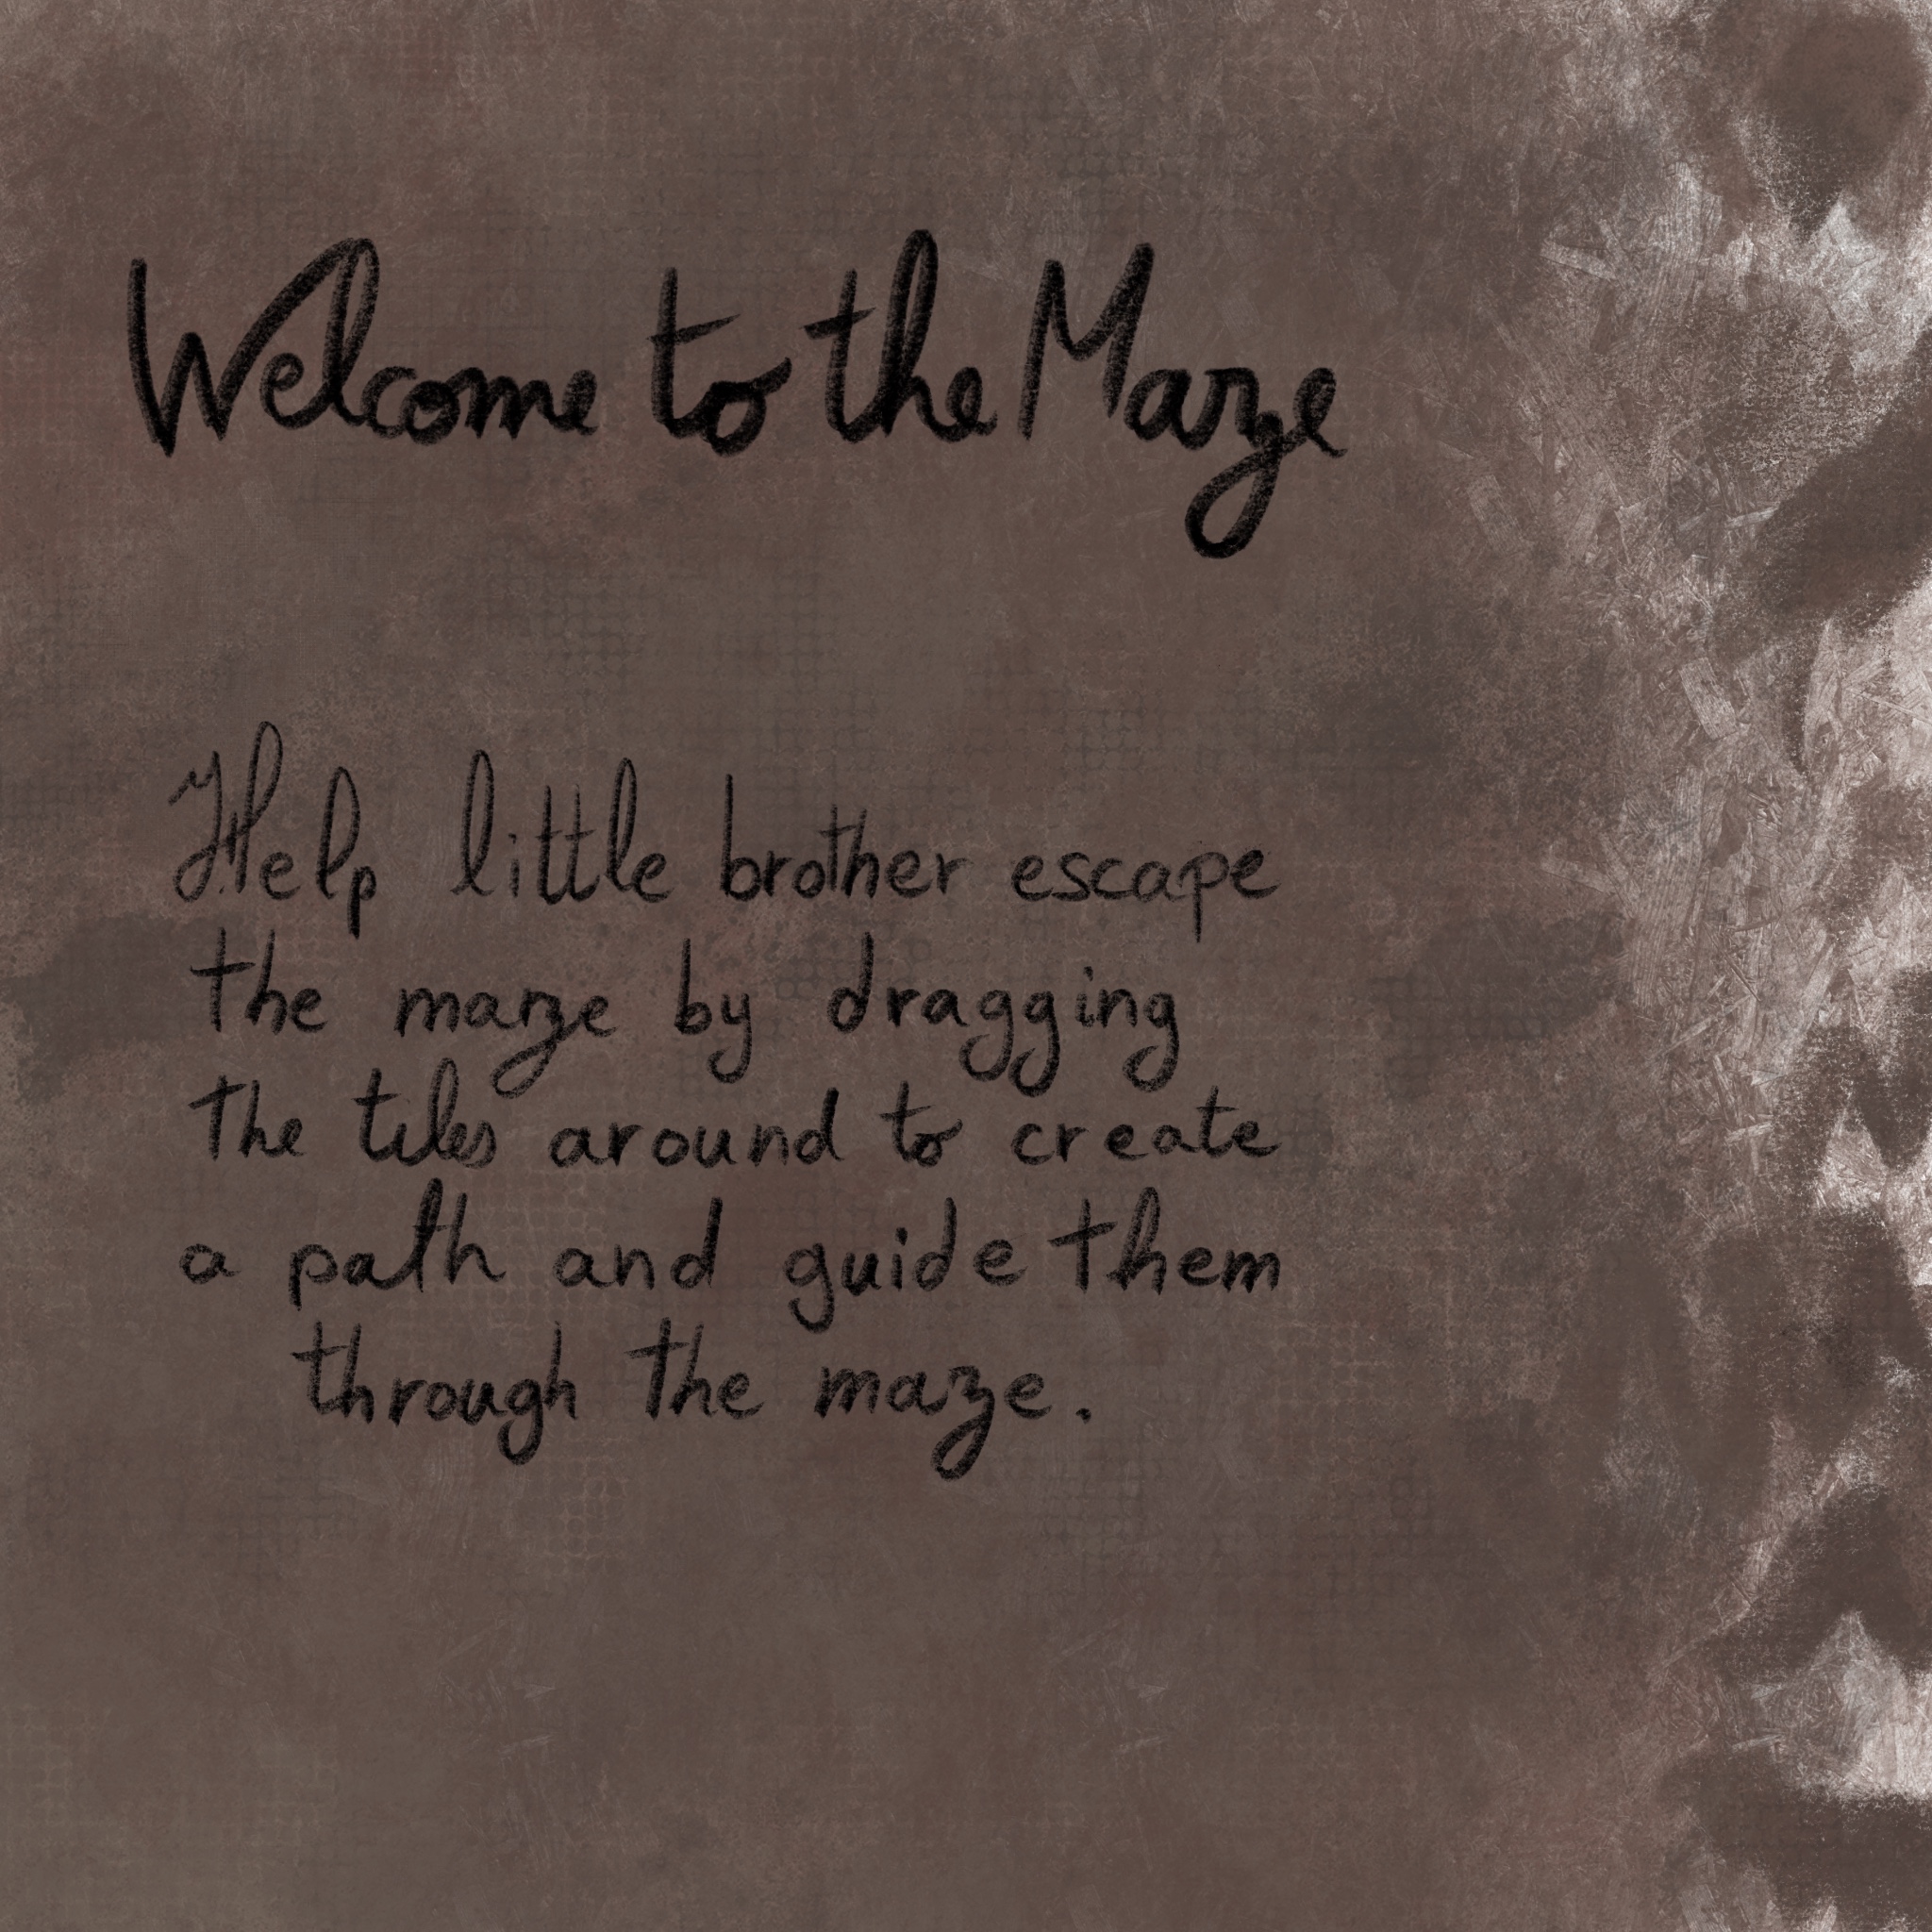 Welcome to the Maze
Help little brother escape
the maze by dragging
the tiles around to create
a path and guide them
through the maze.